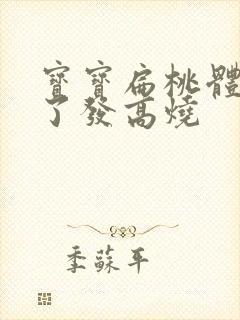 寶寶扁桃體
了發高燒
季蘇平